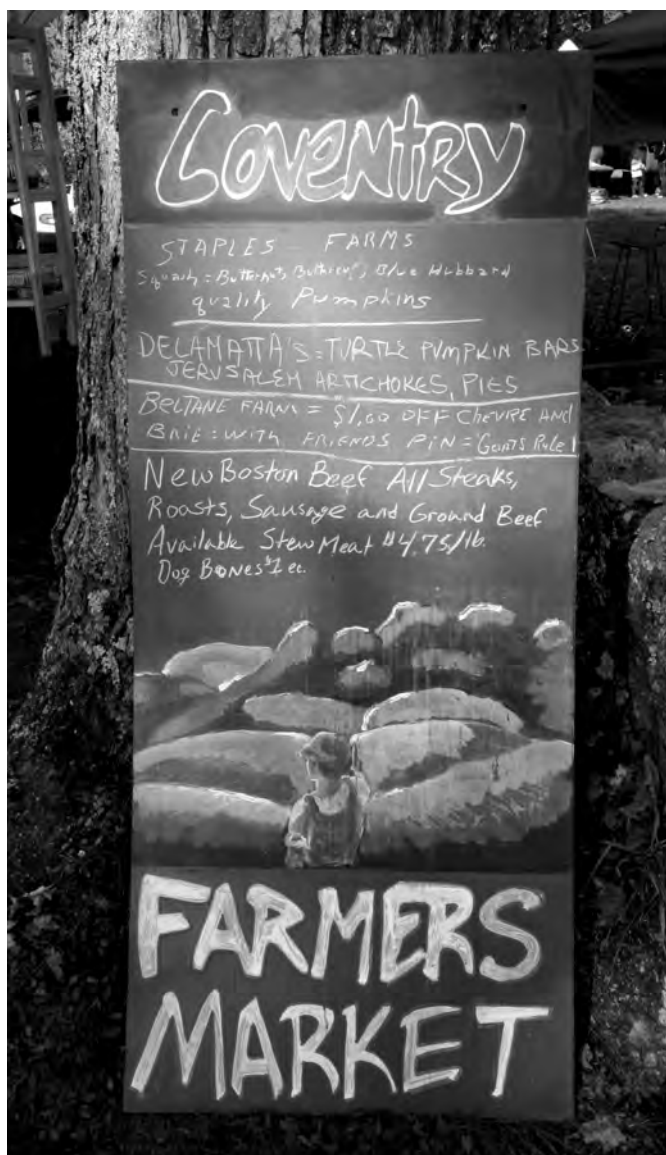 COVENTRY
STAPLES FARMS
Squash = Butternut, Buttercup, Blue Hubbard
quality Pumpkins
DELAMATTA'S = TURTLE PUMPKIN BARS
JERUSALEM ARTICHOKES, PIES
BELTANE FARM = $1.00 OFF CHEVRE AND
BRIE = WITH FRIENDS PIN = GOATS Rule!
New Boston Beef All Steaks,
Roasts, Sausage and Ground Beef
Available Stew Meat $4.75/lb.
Dog BONES $1 ea.
FARMERS
MARKET